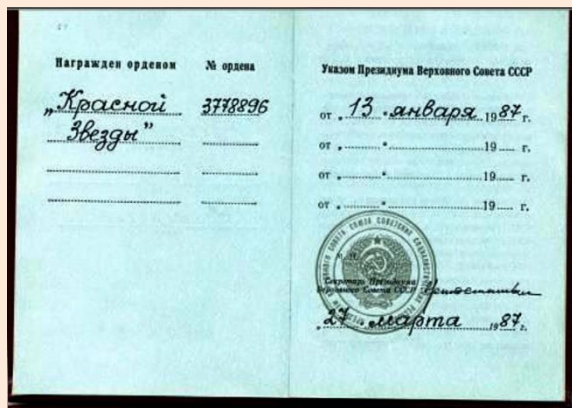 Награжден орденом № ордена
„Красной 3778896
Звезды”
Указом Президиума Верховного Совета СССР
от „13 “ января 1987 г.
от „ “ 19 г.
от „ “ 19 г.
от „ “ 19 г.
М. П.
Секретарь Президиума
Верховного Совета СССР
„27 марта 1987 г.